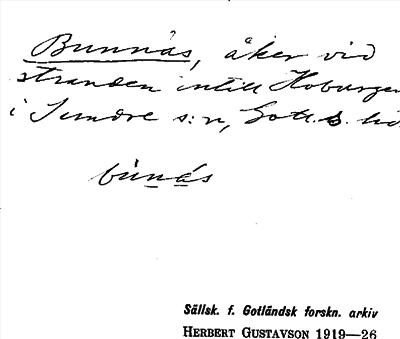 Bunnäs, åker vid
stranden intill Hoburgen
i Sundre s:n, Gotl.s
bunäs
Sällsk. f. Gotländsk forskn. arkiv
HERBERT GUSTAVSON 1919—26